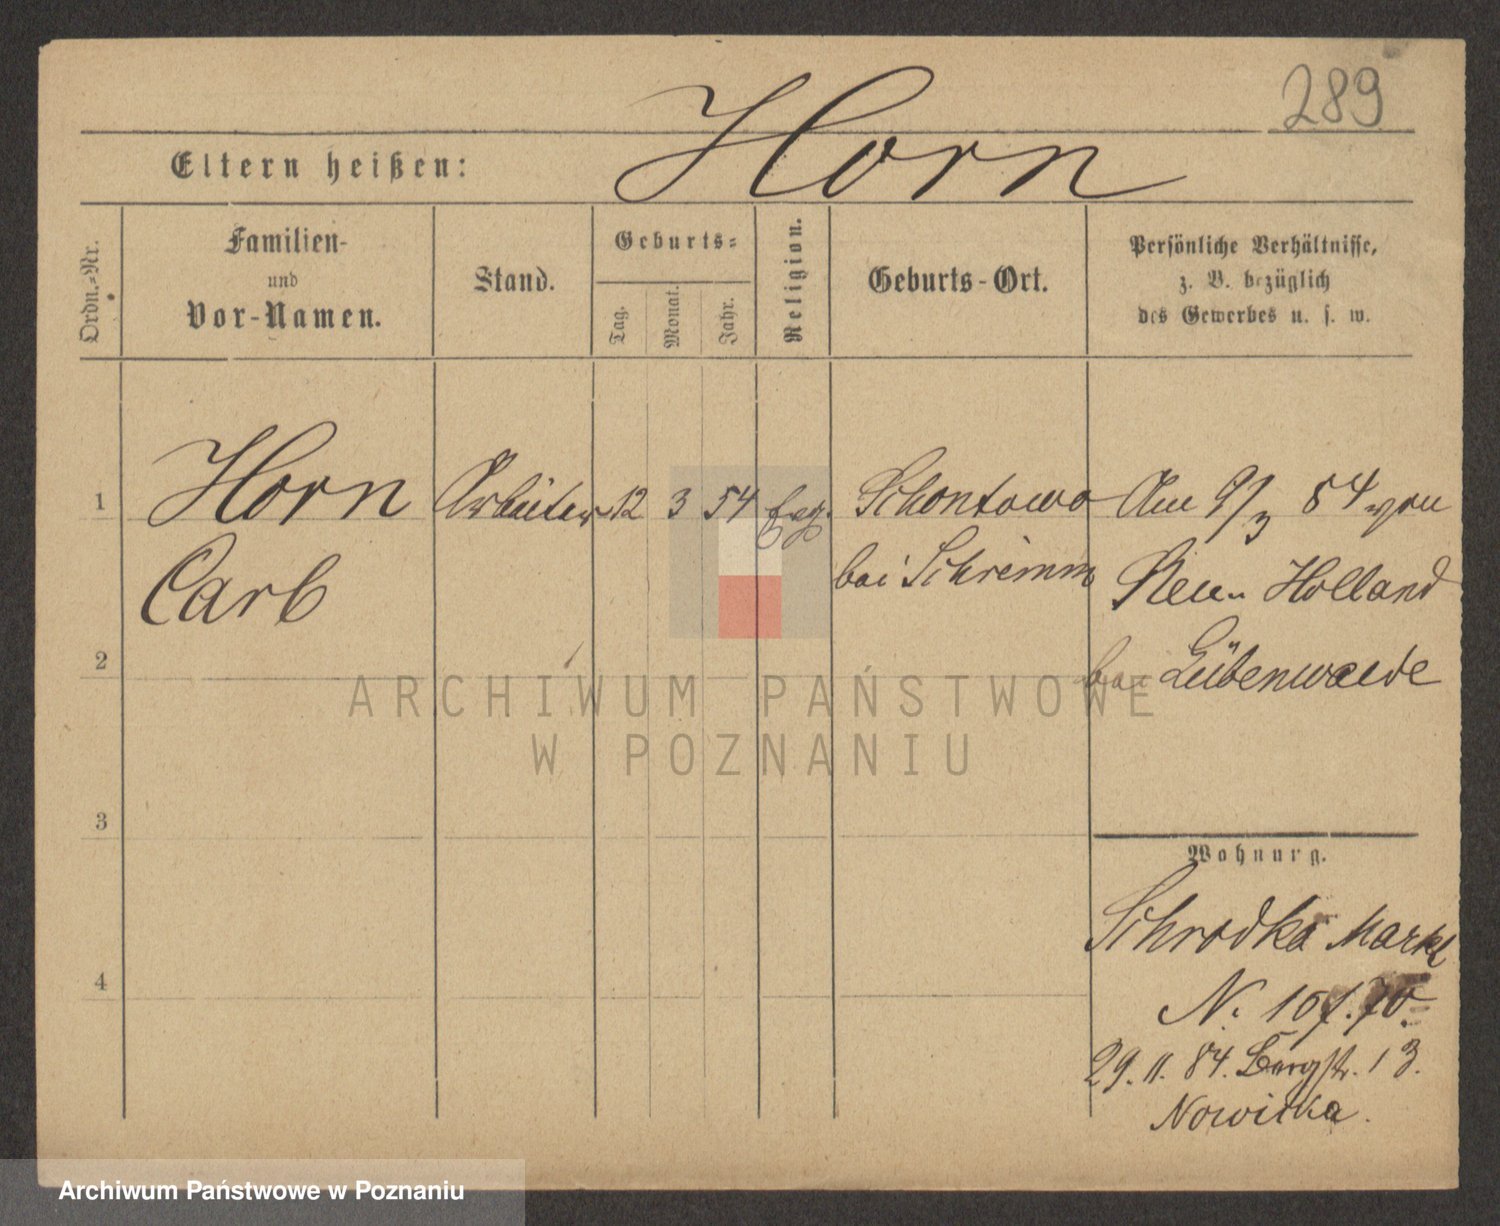 289
Horn
Eltern heißen:
Ordn.-Nr.
Familien-
und
Vor-Namen.
Stand.
Geburts-
Tag.
Monat.
Jahr.
Religion.
Geburts-Ort.
Persönliche Verhältnisse,
z. B. bezüglich
des Gewerbes u. s. w.
1 Horn Arbeiter 12 3 54 Schontowo Am 9/3 84 von
Carl bei Schrimm Neu Holland
bei Lübenwalde
2
ARCHIWUM PAŃSTWOWE
W POZNANIU
3
Wohnung.
Schrodka Markt
4
N.
29. 11. 84. Bergstr. 13.
Nowicka.
Archiwum Państwowe w Poznaniu